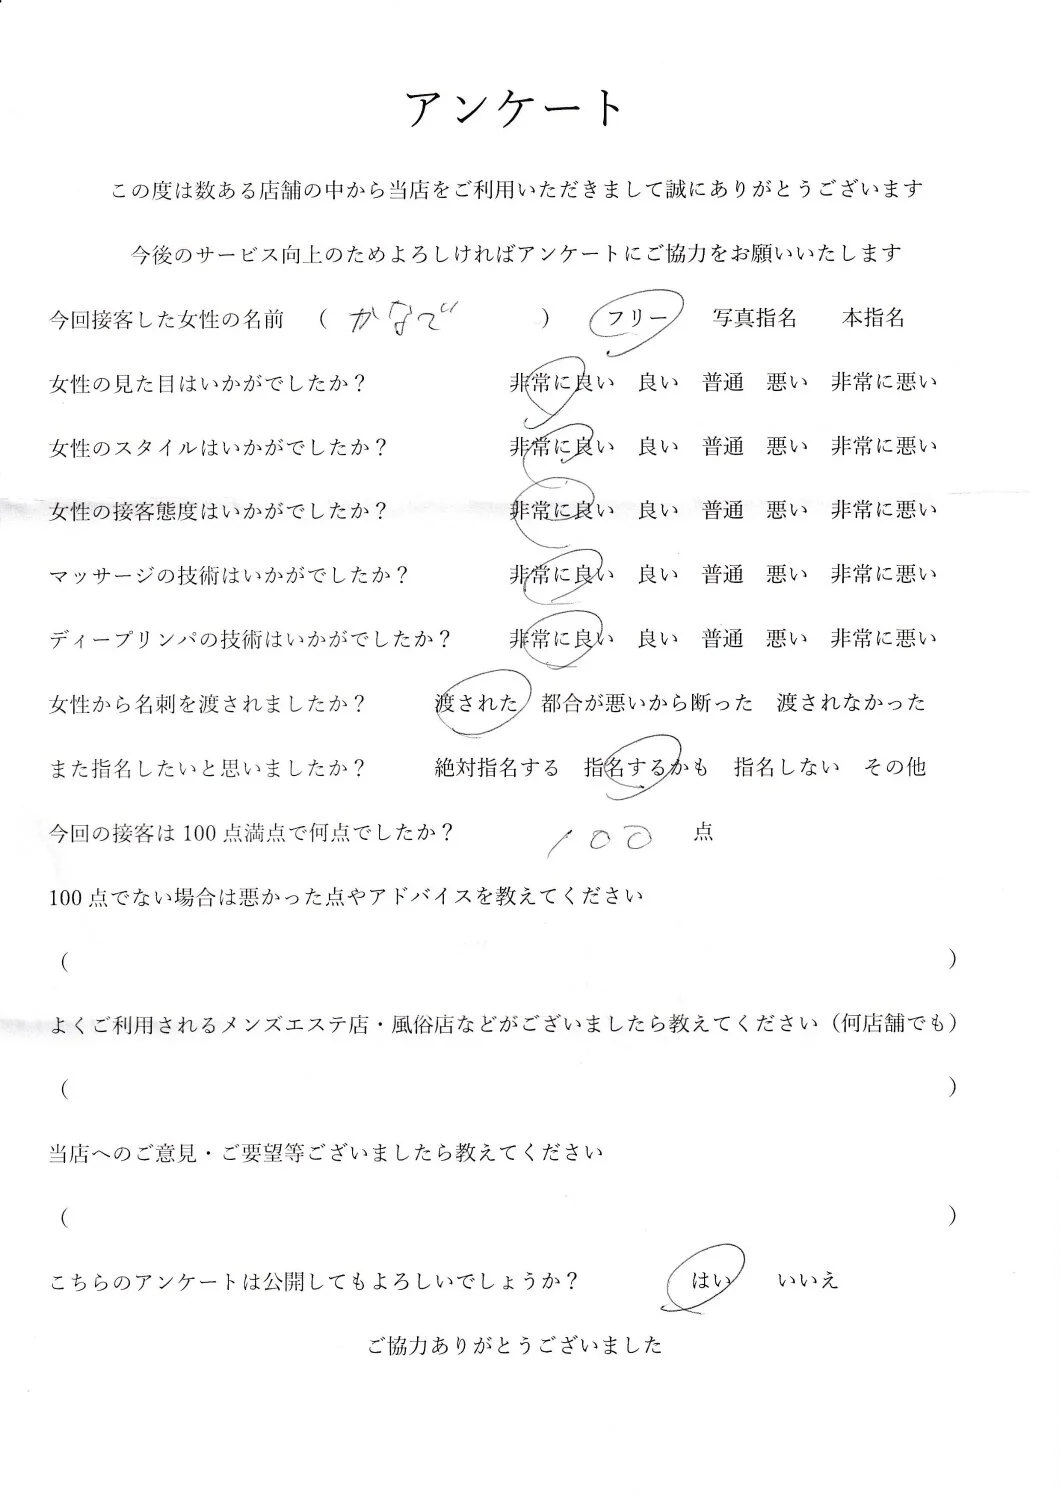 アンケート
この度は数ある店舗の中から当店をご利用いただきまして誠にありがとうございます
今後のサービス向上のためよろしければアンケートにご協力をお願いいたします
今回接客した女性の名前 （ かなで ） フリー 写真指名 本指名
女性の見た目はいかがでしたか？ 非常に良い 良い 普通 悪い 非常に悪い
女性のスタイルはいかがでしたか？ 非常に良い 良い 普通 悪い 非常に悪い
女性の接客態度はいかがでしたか？ 非常に良い 良い 普通 悪い 非常に悪い
マッサージの技術はいかがでしたか？ 非常に良い 良い 普通 悪い 非常に悪い
ディープリンパの技術はいかがでしたか？ 非常に良い 良い 普通 悪い 非常に悪い
女性から名刺を渡されましたか？ 渡された 都合が悪いから断った 渡されなかった
また指名したいと思いましたか？ 絶対指名する 指名するかも 指名しない その他
今回の接客は 100 点満点で何点でしたか？ 100 点
100 点でない場合は悪かった点やアドバイスを教えてください
（ ）
よくご利用されるメンズエステ店・風俗店などがございましたら教えてください（何店舗でも）
（ ）
当店へのご意見・ご要望等ございましたら教えてください
（ ）
こちらのアンケートは公開してもよろしいでしょうか？ はい いいえ
ご協力ありがとうございました